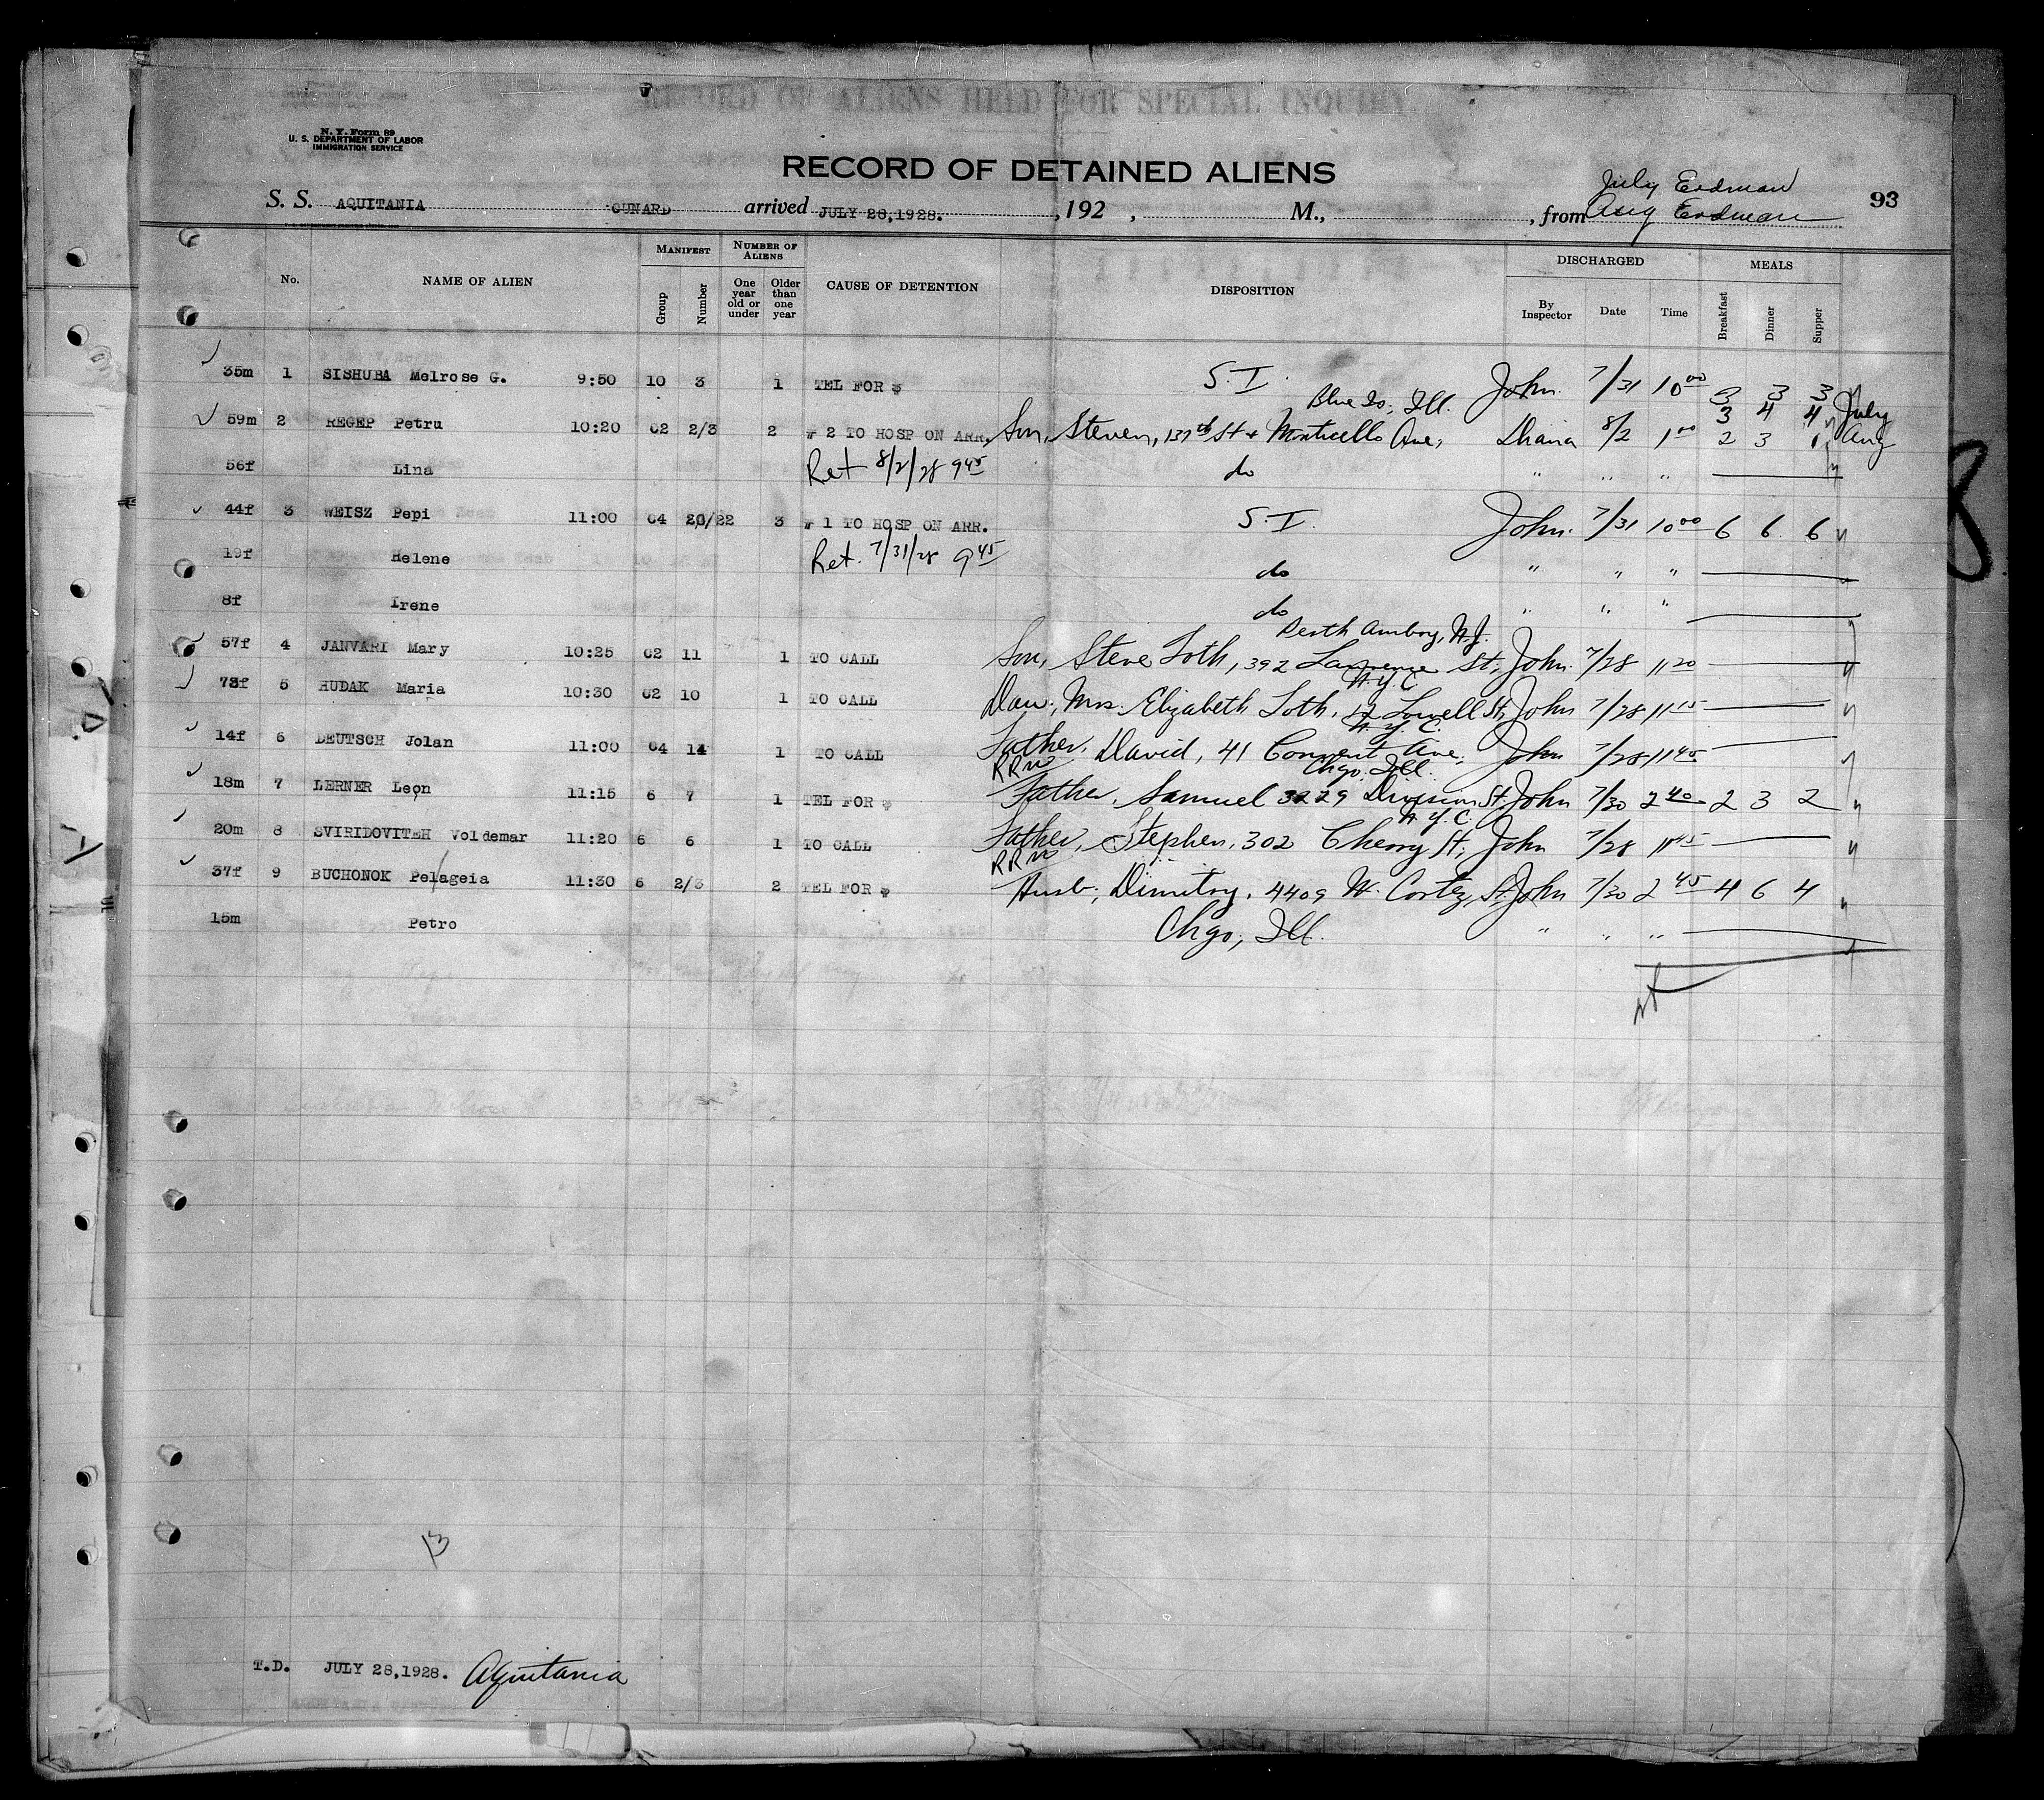 RECORD OF ALIENS HELD FOR SPECIAL INQUIRY
N. Y. Form 89
U. S. DEPARTMENT OF LABOR
IMMIGRATION SERVICE
RECORD OF DETAINED ALIENS
July Erdman
S. S. AQUITANIA CUNARD arrived JULY 28,1928. , 192 , M., , from Aug Erdman 93
No. NAME OF ALIEN MANIFEST Group Number NUMBER OF ALIENS One year old or under Older than one year CAUSE OF DETENTION DISPOSITION DISCHARGED By Inspector Date Time MEALS Breakfast Dinner Supper
35m 1 SISHUBA Melrose G. 9:50 10 3 1 TEL FOR $ S. I. John. 7/31 10 00 3 3 3
Blue Is, Ill. 3 4 4 July
59m 2 REGEP Petru 10:20 02 2/3 2 # 2 TO HOSP ON ARR. Son, Steven, 137th St + Monticello Ave, 8/2 1 00 2 3 1 Aug
56f Lina Ret 8/2/28 9 45 do " " "
44f 3 WEISZ Pepi 11:00 04 20/22 3 # 1 TO HOSP ON ARR. S. I. John. 7/31 10 00 6 6 6 "
19f Helene Ret. 7/31/28 9 45 do " " "
8f Irene do " " "
Perth Amboy, N.J.
57f 4 JANVARI Mary 10:25 02 11 1 TO CALL Son, Steve Toth, 392 Lawrence St, John. 7/28 11 20 "
N.Y.C.
73f 5 HUDAK Maria 10:30 02 10 1 TO CALL Dau., Mrs. Elizabeth Toth, 12 Lowell St, John 7/28 11 15 "
N.Y.C.
14f 6 DEUTSCH Jolan 11:00 04 14 1 TO CALL Father, David, 41 Convent Ave, John 7/28 11 45
RRW Chgo. Ill.
18m 7 LERNER Leon 11:15 6 7 1 TEL FOR $ Father, Samuel 3229 Division St, John 7/30 2 40 2 3 2 "
N.Y.C.
20m 8 SVIRIDOVITEH Voldemar 11:20 6 6 1 TO CALL Father, Stephen, 302 Cherry St, John 7/28 11 45 "
RRW
37f 9 BUCHONOK Pelageia 11:30 6 2/3 2 TEL FOR $ Husb, Dimitry, 4409 W. Cortez St, John 7/30 2 45 4 6 4 "
15m Petro Chgo, Ill. " " "
13
T.D. JULY 28,1928. Aquitania
8